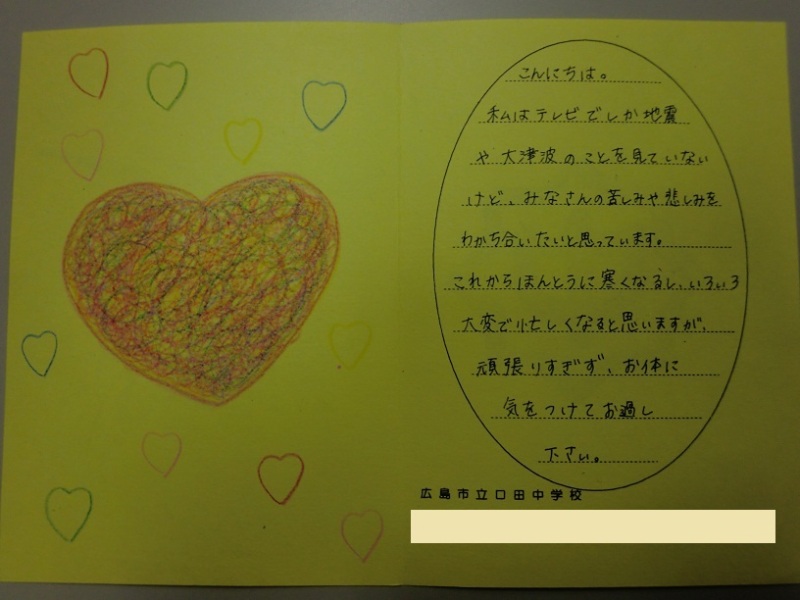 こんにちは。
私はテレビでしか地震
や大津波のことを見ていない
けど、みなさんの苦しみや悲しみを
わかち合いたいと思っています。
これからほんとうに寒くなるし、いろいろ
大変で忙しくなると思いますが、
頑張りすぎず、お体に
気をつけてお過し
下さい。
広島市立口田中学校